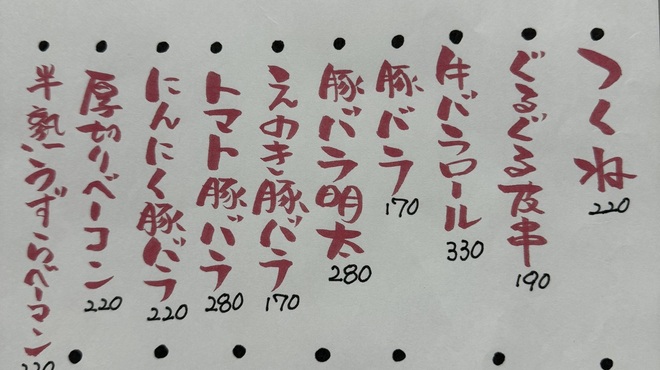 つくね
220
ぐるぐる皮串
190
牛バラロール
330
豚バラ
170
豚バラ明太
280
えのき豚バラ
170
トマト豚バラ
280
にんにく豚バラ
220
厚切りベーコン
220
半熟うずらベーコン